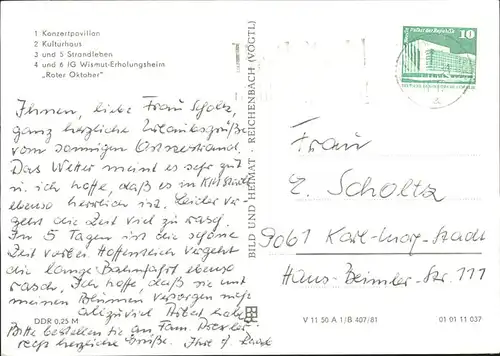 1 Konzertpavillon
2 Kulturhaus
3 und 5 Strandleben
4 und 6 IG Wismut-Erholungsheim
„Roter Oktober"
Ihnen, liebe Frau Scholz,
ganz herzliche Urlaubsgrüße
vom sonnigen Ostseestrand.
Das Wetter meint es sehr gut
u. ich hoffe, daß es in KMStadt
ebenso herrlich ist. Leider ver-
geht die Zeit viel zu rasch.
In 5 Tagen ist die schöne
Zeit vorbei. Hoffentlich vergeht
die lange Bahnfahrt ebenso
rasch. Ich hoffe, daß sie mit
meinen Blumen versorgen nicht
allzuviel Arbeit haben.
Bitte bestellen Sie an Fam.
recht herzliche Grüße. Ihre
DDR 0,25 M
BILD UND HEIMAT · REICHENBACH (VOGTL)
Palast der Republik
10
Frau
E. Scholtz
9061 Karl-Marx-Stadt
Hans-Beimler-Str. 111
V 11 50 A 1/B 407/81
01 01 11 037